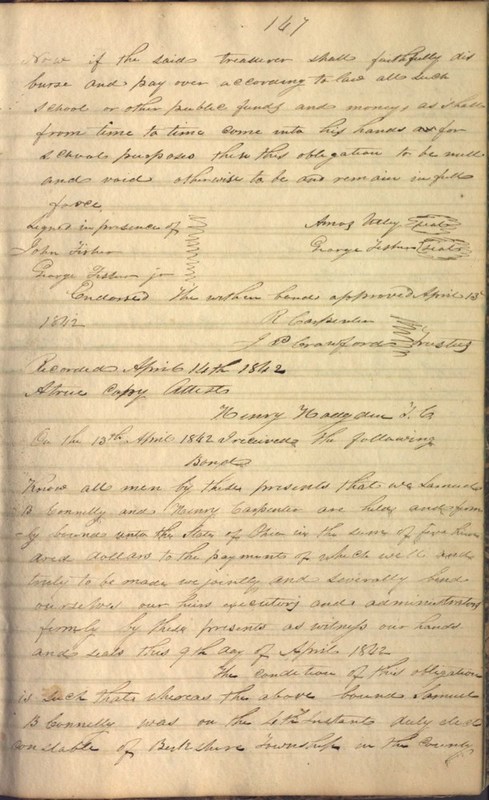 147
Now if the said treasurer shall faithfully dis
burse and pay over according to law all such
School or other public funds and money, as shall
from time to time come into his hands for
School purposes then this obligation to be null
and void otherwise to be and remain in full
force
Signed in presence of
Amos Utley Seal
John Fisher
George Fisher Seal
George Fisher jr
Endorsed The within bond approved April 13th
1842
R Carpenter
Crawford Trustees
Recorded April 14th 1842
A true Copy Attest
Henry Hodgden T. C
On the 13th April 1842 I received the following
Bond
Know all men by these presents that we Samuel
B Connelly and Henry Carpenter are held and firm
ly bound unto the State of Ohio in the sum of five hun
dred dollars to the payment of which well and
truly to be made we jointly and severally bind
ourselves our heirs executors and administrators
firmly by these presents as witness our hands
and seals this 9th day of April 1842
The condition of this obligation
is such that whereas the above bound Samuel
B Connelly was on the 4th Instant duly elect
constable of Berkshire Township in the County